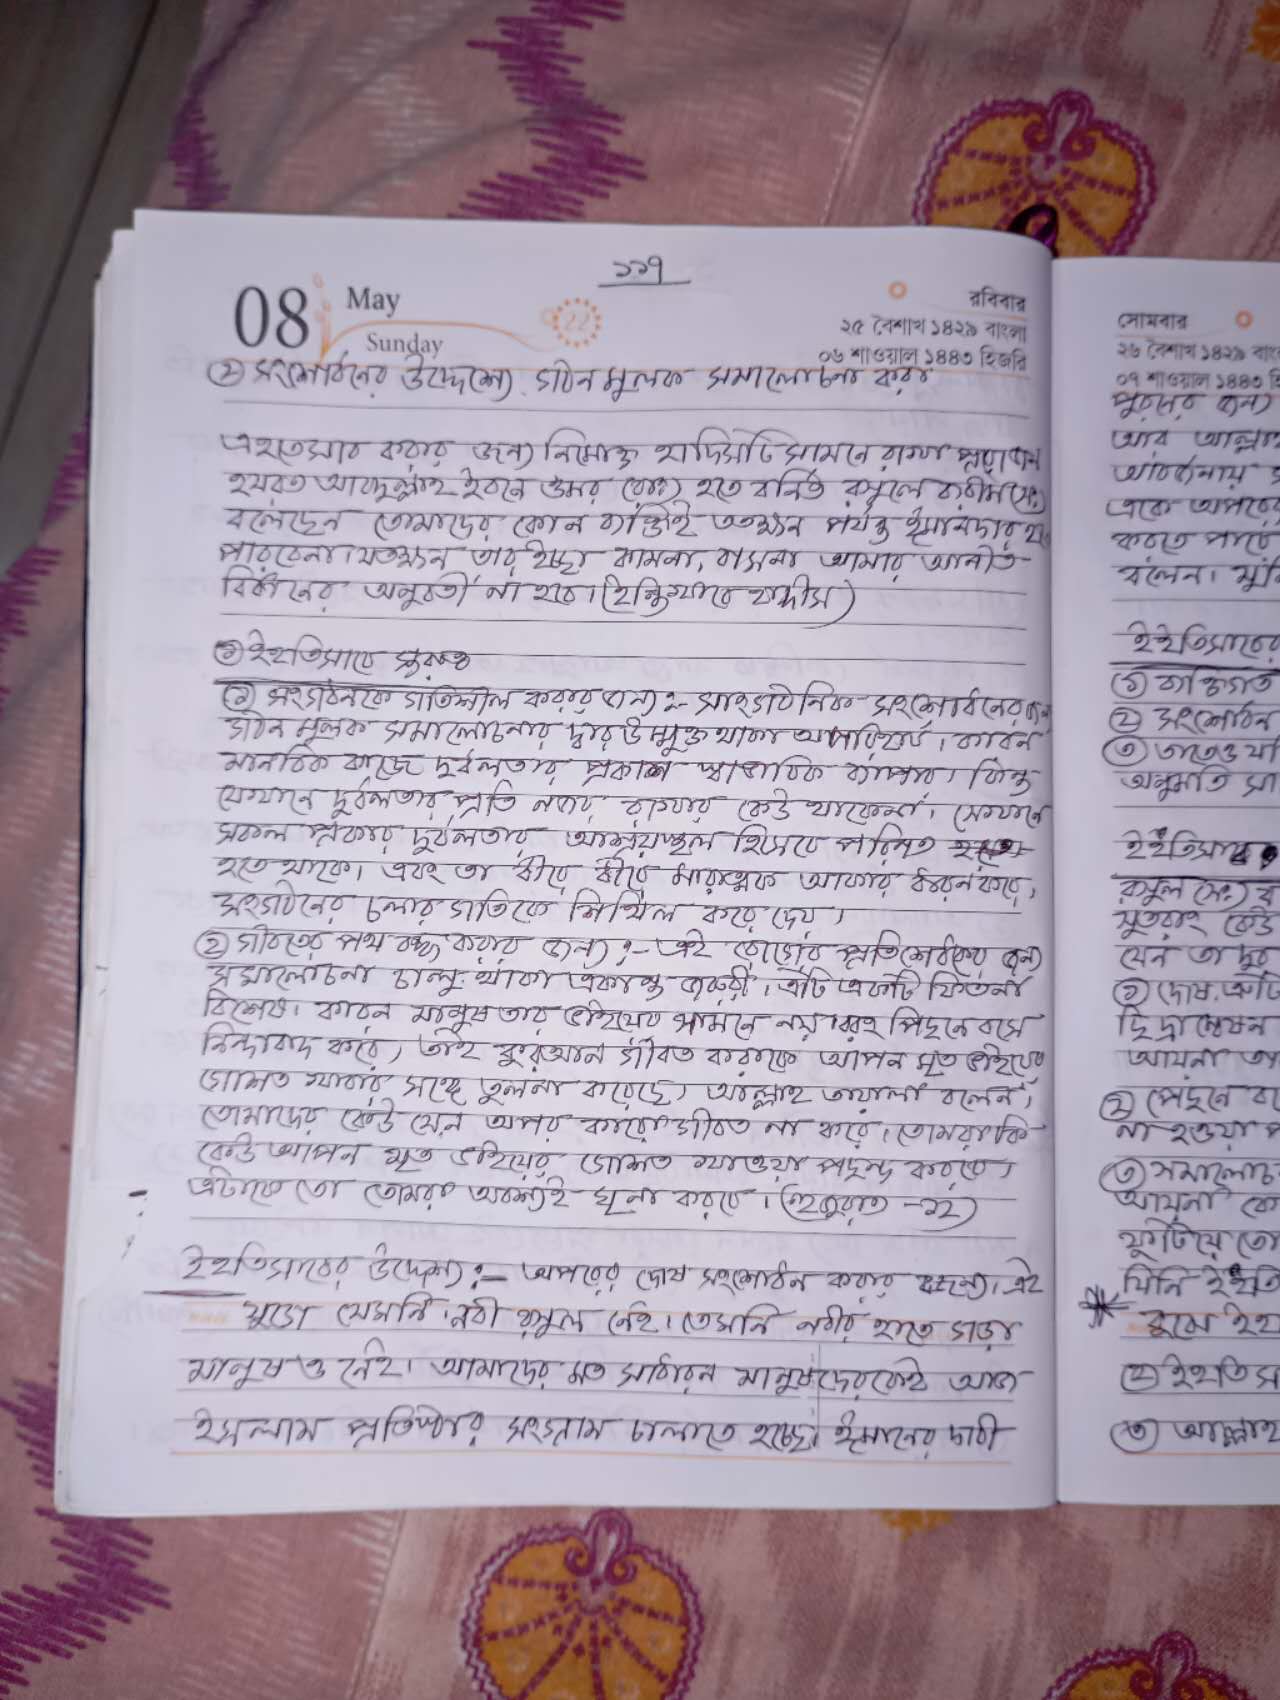 ১১৭
08 May
Sunday
22
রবিবার
২৫ বৈশাখ ১৪২৯ বাংলা
০৬ শাওয়াল ১৪৪৩ হিজরি
② সংশোধনের উদ্দেশ্যে গঠন মূলক সমালোচনা করা
এহতেসাব করার জন্য নিম্নোক্ত হাদিসটি সামনে রাখা প্রয়োজন
হযরত আব্দুল্লাহ ইবনে ওমর (রাঃ) হতে বর্নিত রসুলে করীম (সঃ)
বলেছেন তোমাদের কোন ব্যক্তিই ততক্ষন পর্যন্ত ইমানদার হতে
পারবেনা। যতক্ষন তার ইচ্ছা কামনা, বাসনা আমার আনীত
বিধানের অনুবর্তী না হবে। (ইন্তিখাবে হাদীস)
③ ইহতিসাবে গুরুত্ব
(১) সংগঠনকে গতিশীল করার জন্য :- সাংগঠনিক সংশোধনের জন্য
গঠন মূলক সমালোচনার দ্বার উন্মুক্ত থাকা অপরিহার্য। কারন
মানবিক কাজে দুর্বলতার প্রকাশ স্বাভাবিক ব্যাপার। কিন্তু
যেখানে দুর্বলতার প্রতি নজর রাখার কেউ থাকেনা। সেখানে
সকল প্রকার দুর্বলতার আশ্রয়স্থল হিসেবে পরিনত
হতে থাকে। এবং তা ধীরে ধীরে মারাত্মক আকার ধারন করে,
সংগঠনের চলার গতিকে শিথিল করে দেয়।
② গীবতের পথ বন্ধ করার জন্য :- এই রোগের প্রতিশেধকের জন্য
সমালোচনা চালু থাকা একান্ত জরুরী। এটি একটি ফিতনা
বিশেষ। কারন মানুষ তার ভাইয়ের সামনে নয়। বরং পিছনে বসে
নিন্দাবাদ করে, তাই কুরআন গীবত করাকে আপন মৃত ভাইয়ের
গোশত খাবার সঙ্গে তুলনা করেছে। আল্লাহ তায়ালা বলেন,
তোমাদের কেউ যেন অপর কারো গীবত না করে। তোমরা কি
কেউ আপন মৃত ভাইয়ের গোশত খাওয়া পছন্দ করবে।
এটাকে তো তোমরা অবশ্যই ঘৃনা করবে। (হুজুরাত -১২)
ইহতিসাবের উদ্দেশ্য :- অপরের দোষ সংশোধন করার জন্যে। এই
যুগে যেমনি নবী রসুল নেই। তেমনি নবীর হাতে গড়া
মানুষ ও নেই। আমাদের মত সাধারন মানুষদেরকেই আজ
ইসলাম প্রতিষ্ঠার সংগ্রাম চালাতে হচ্ছে। ইমানের দাবী
সোমবার
২৬ বৈশাখ ১৪২৯
০৭ শাওয়াল ১৪৪৩
একে অপরের
করতে পারে
বলেন।
ইহতিসাবের
① ব্যক্তিগত
② সংশোধন
③ তাতেও যদি
অনুমতি
ইহতিসাব
রসুল (সঃ)
সুতরাং কেউ
যেন তা দূর
① দোষ ত্রুটি
আয়না
② পেছনে
না হওয়া
③ সমালোচ
আয়না
ফুটিয়ে তো
যিনি ইহতি
② ইহতিস
③ আল্লাহ